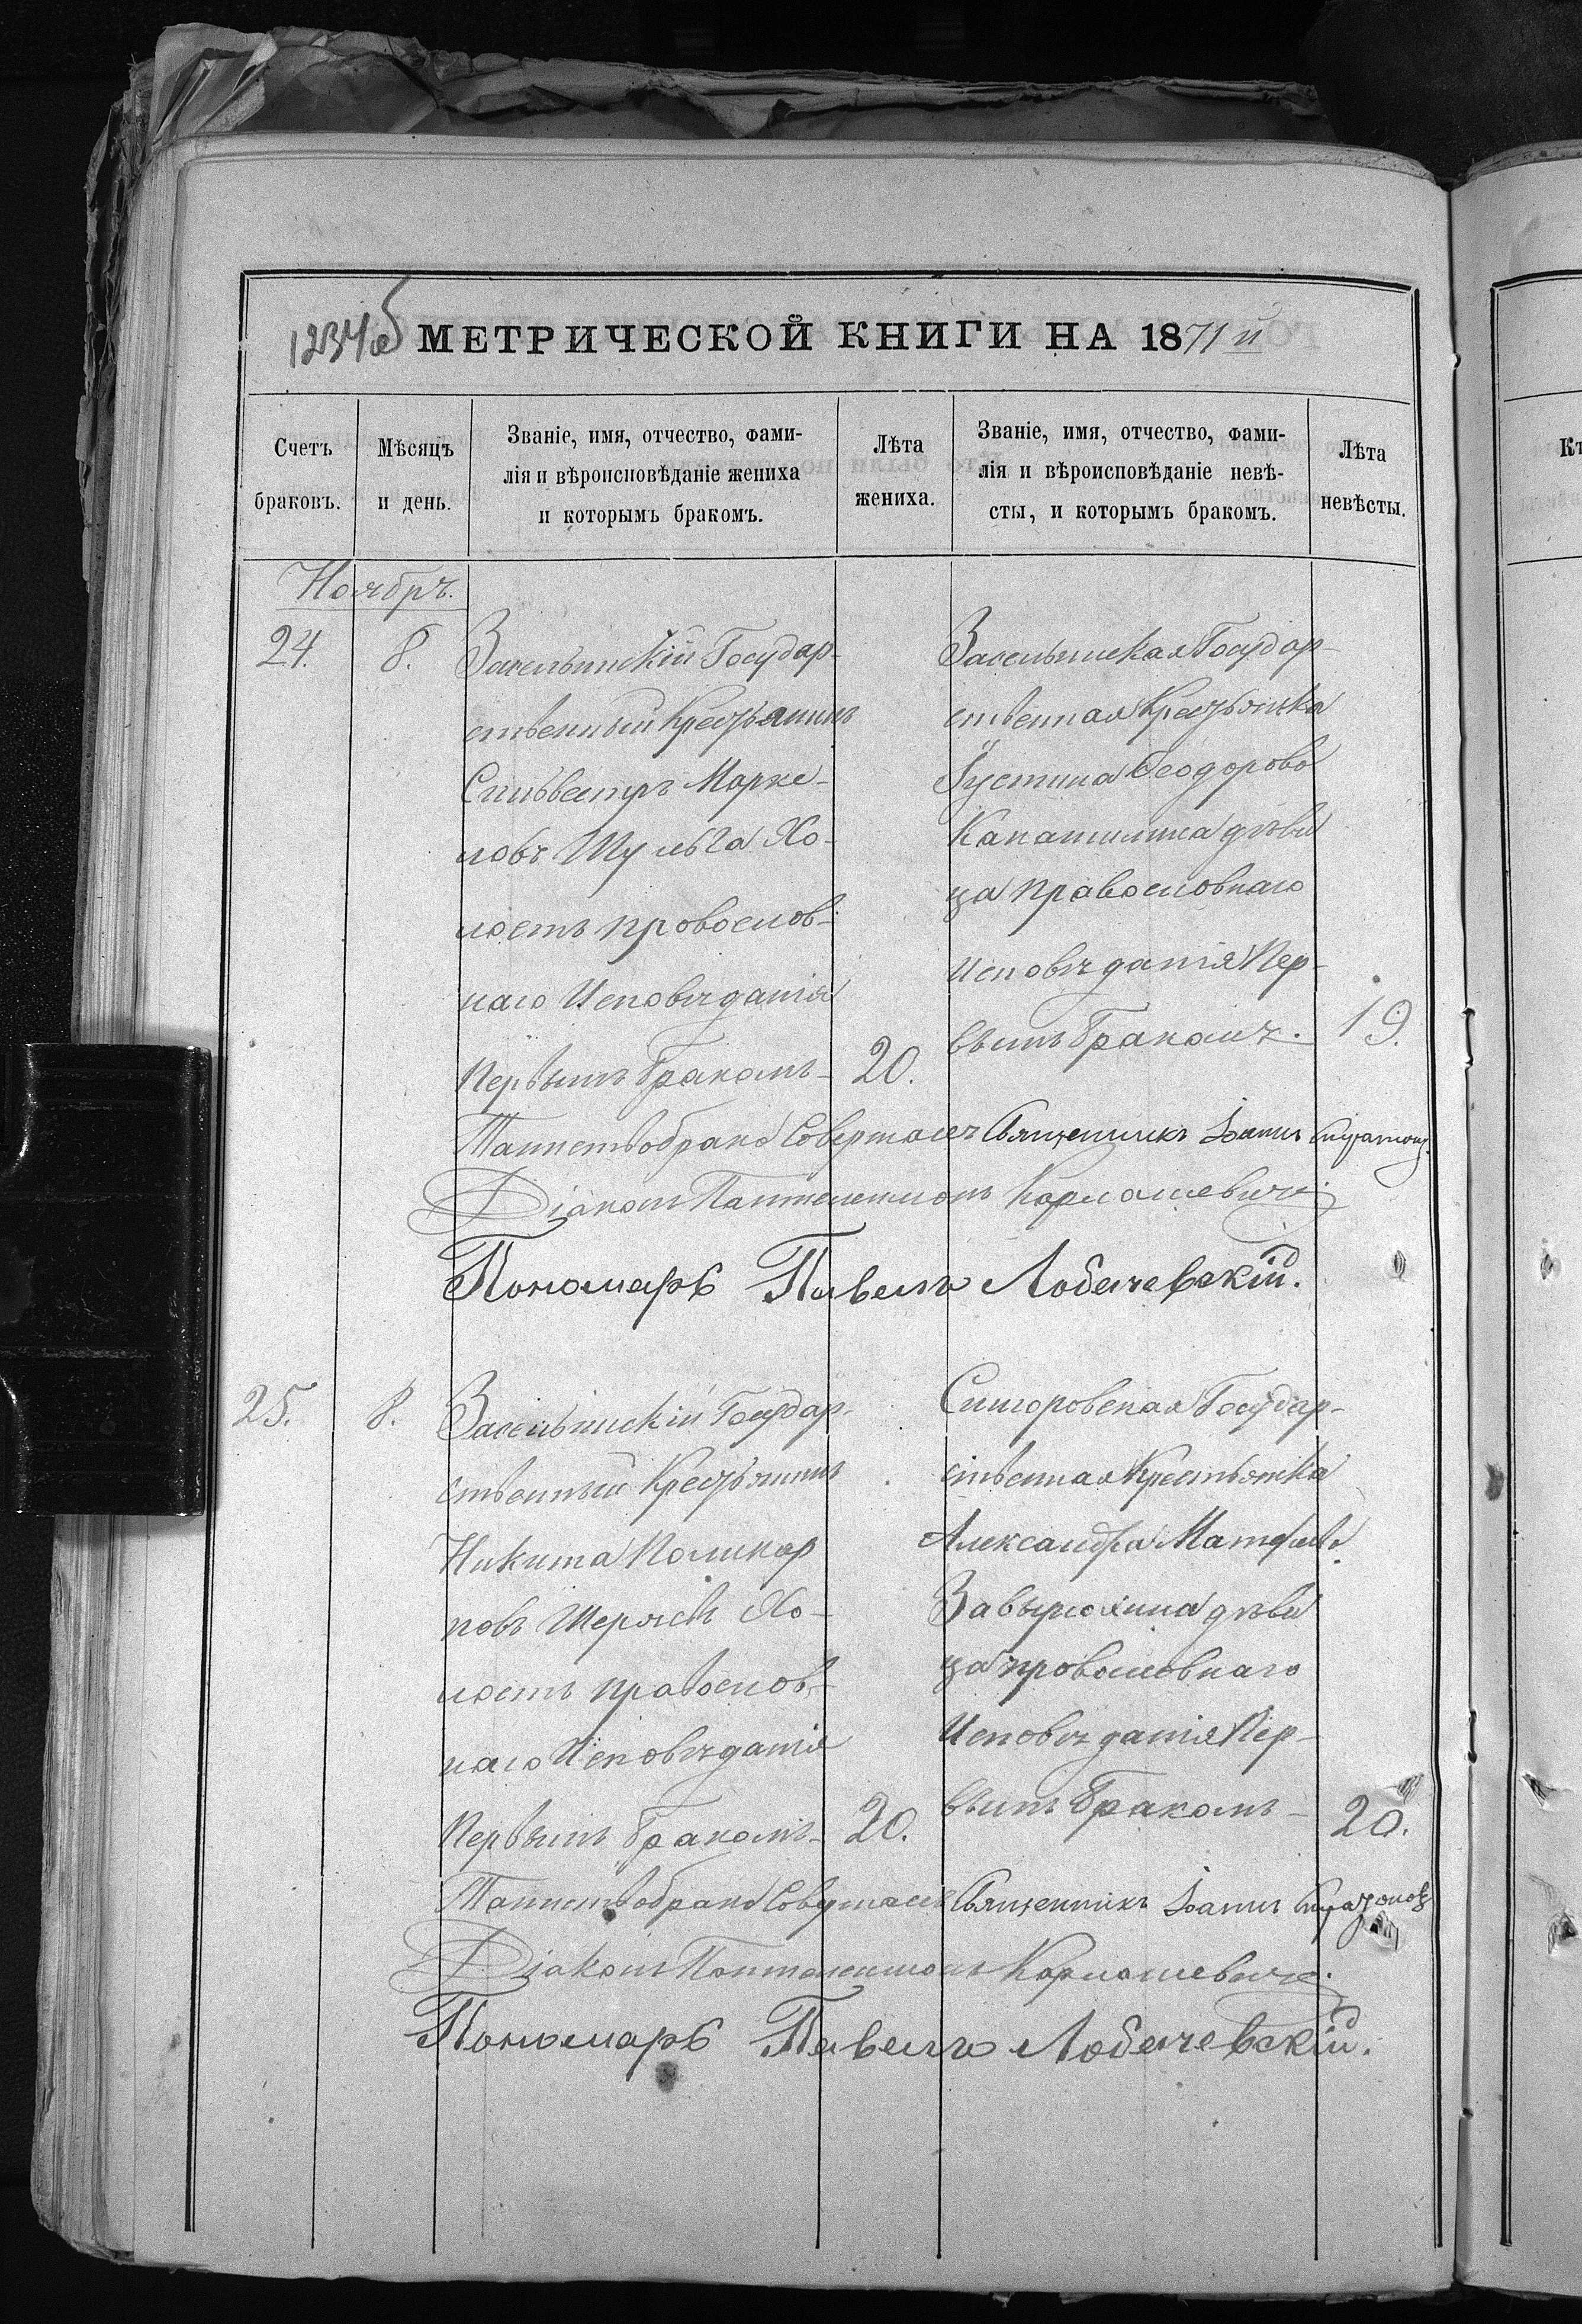 1234об МЕТРИЧЕСКОЙ КНИГИ НА 1871й
Счетъ браковъ.
Мѣсяцъ и день.
Званіе, имя, отчество, фами-
лія и вѣроисповѣданіе жениха
и которымъ бракомъ.
Лѣта
жениха.
Званіе, имя, отчество, фами-
лія и вѣроисповѣданіе невѣ-
сты, и которымъ бракомъ.
Лѣта
невѣсты.
Ноябрь.
24. 8.
Засельинскій Государ-
ственный Крестьянинъ
Сильвестръ Марке-
ловъ Шульга Хо-
лостъ провослов-
наго Исповѣданія
Первымъ бракомъ- 20.
Засельинская Государ-
ственная Крестьянка
Іустина Феодорово
дѣви
ца православнаго
Исповѣданія Пер-
вымъ бракомъ. 19.
Таинство брака Совершалъ Священникъ Іоаннъ
Діаконъ Пантелеимонъ Кармашевичъ
Пономарь Павелъ Лобачевскій.
25. 8.
Засельинскій Государ-
ственный Крестьянинъ
Никита Поликар
повъ Хо-
лостъ православ-
наго Исповѣданія
Первымъ бракомъ- 20.
Государ-
ственная Крестьянка
Александра
дѣви
ца провославнаго
Исповѣданія Пер-
вымъ бракомъ- 20.
Таинство брака Совершалъ Священникъ Іоаннъ
Діаконъ Пантелеимонъ Кармашевичъ.
Пономарь Павелъ Лобачевскій.
Кт